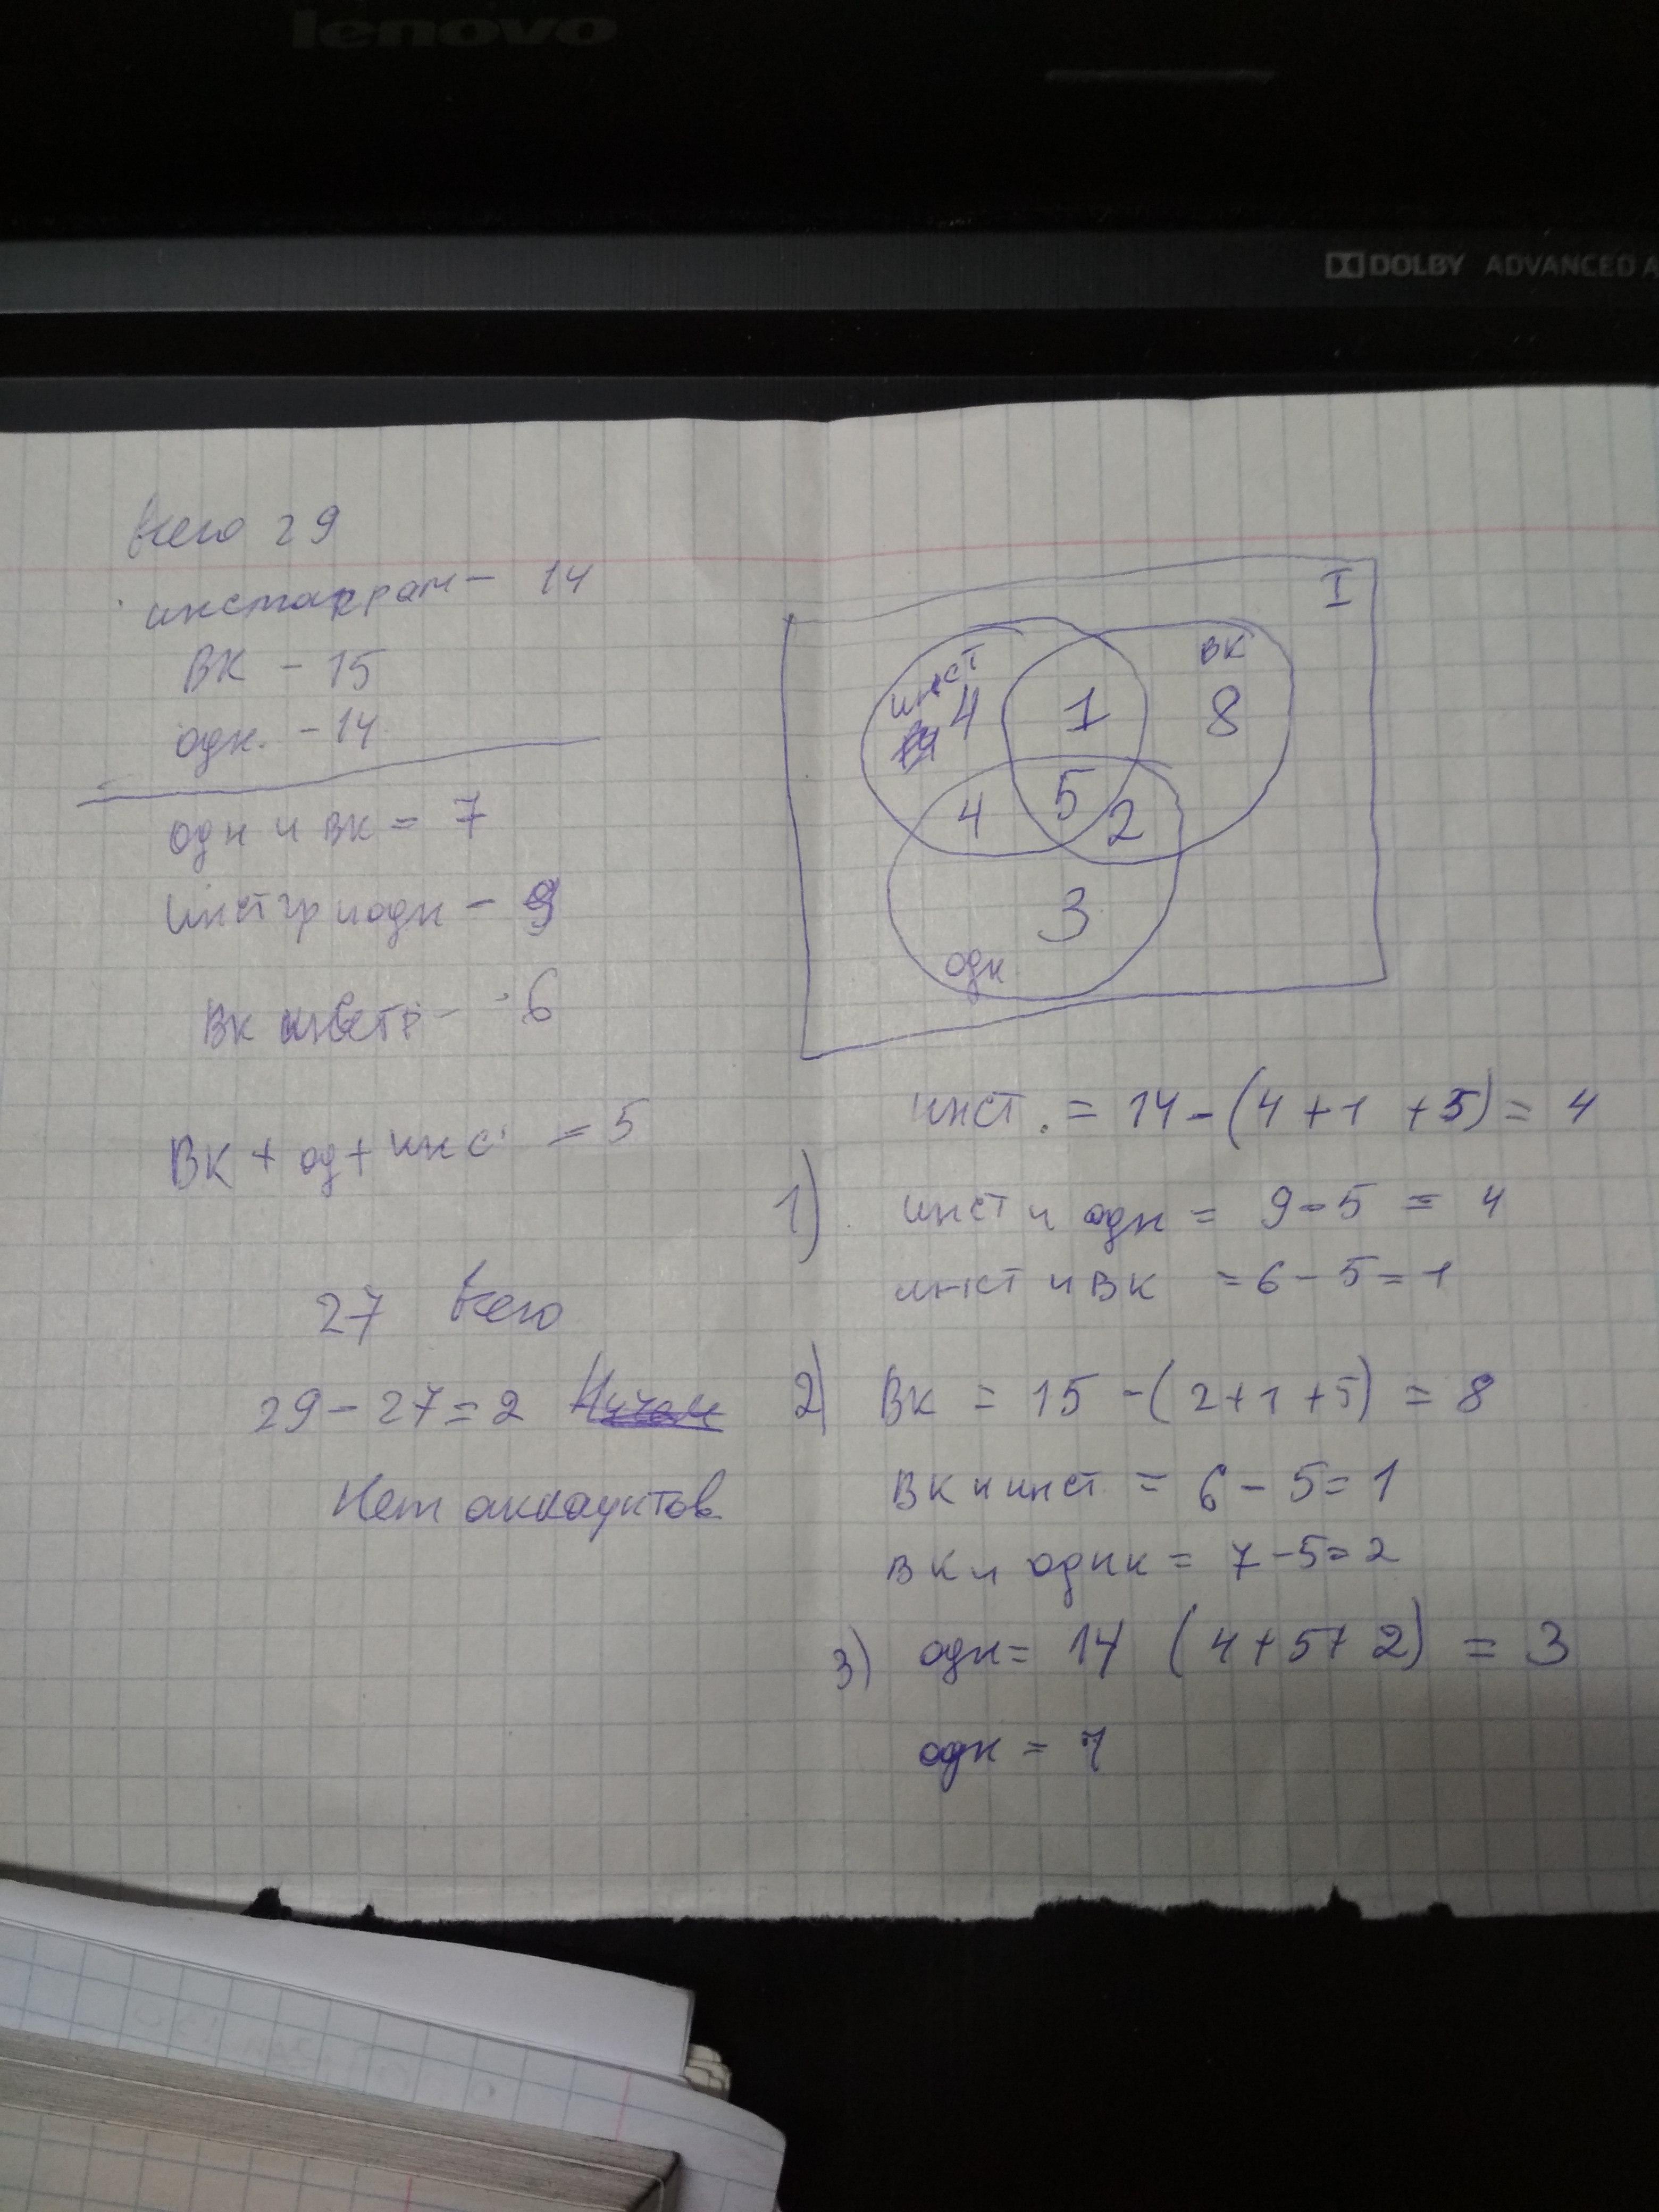 lenovo
DOLBY ADVANCED A
Всего 29
инстаграм - 14
ВК - 15
одн. - 14
одн и вк = 7
инстгр и одн - 9
ВК инстр - 6
ВК + од + инс = 5
27 Всего
29 - 27 = 2
Нет аккаунтов
I
инст
ВК
4
1
8
4
5
2
3
одн
инст. = 14 - (4 + 1 + 5) = 4
1) инст и одн = 9 - 5 = 4
инст и ВК = 6 - 5 = 1
2) Вк = 15 - (2 + 1 + 5) = 8
Вк и инст = 6 - 5 = 1
вк и однк = 7 - 5 = 2
3) одн = 14 (4 + 5 + 2) = 3
одн = 7